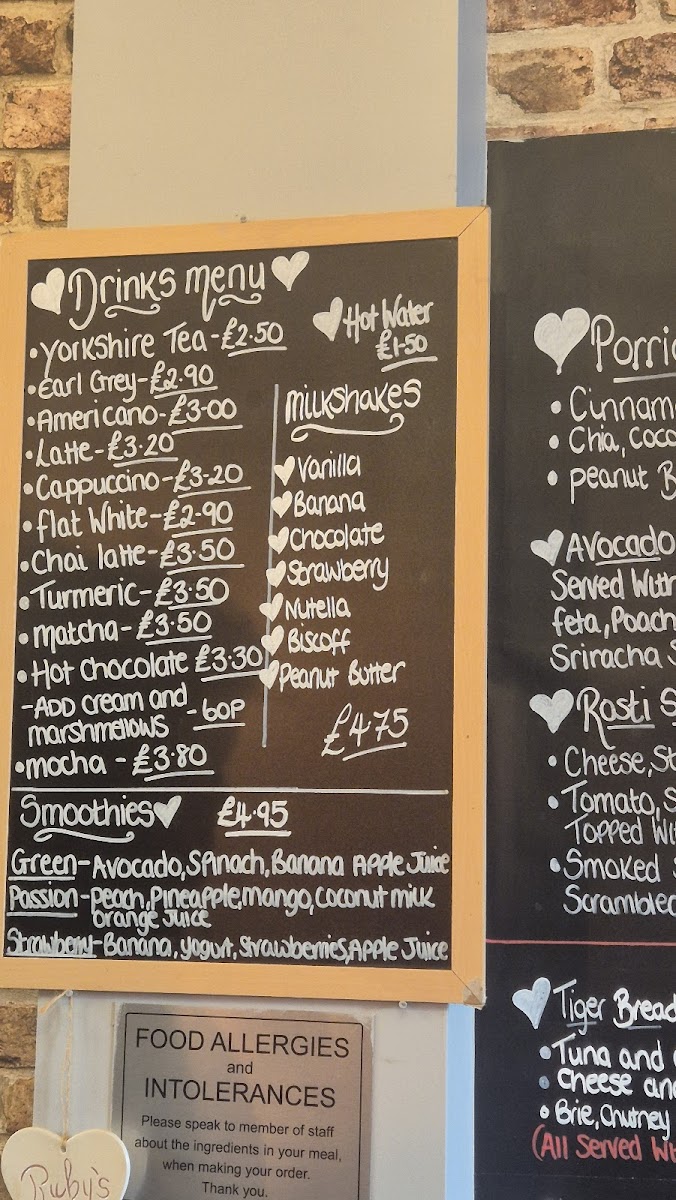 Drinks menu
• Yorkshire Tea - £2.50
• Earl Grey - £2.90
• Americano - £3.00
• Latte - £3.20
• Cappuccino - £3.20
• flat White - £2.90
• Chai latte - £3.50
• Turmeric - £3.50
• matcha - £3.50
• Hot chocolate £3.30
- ADD cream and
marshmellows - 60P
• mocha - £3.80
Hot Water
£1.50
milkshakes
Vanilla
Banana
Chocolate
Strawberry
Nutella
Biscoff
Peanut Butter
£4.75
Smoothies £4.95
Green - Avocado, Spinach, Banana Apple Juice
Passion - Peach, Pineapple, mango, Coconut milk
Orange Juice
Strawberry - Banana, yogurt, Strawberries, Apple Juice
FOOD ALLERGIES
and
INTOLERANCES
Please speak to member of staff
about the ingredients in your meal,
when making your order.
Thank you.
Ruby's
• 
• Chia,
• peanut
Avocado
Served
feta,
Sriracha
Rosti
• Cheese,
• Tomato,
Topped
• Smoked
Tiger Bread
• Tuna and
• Cheese
• Brie, Chutney
(All Served